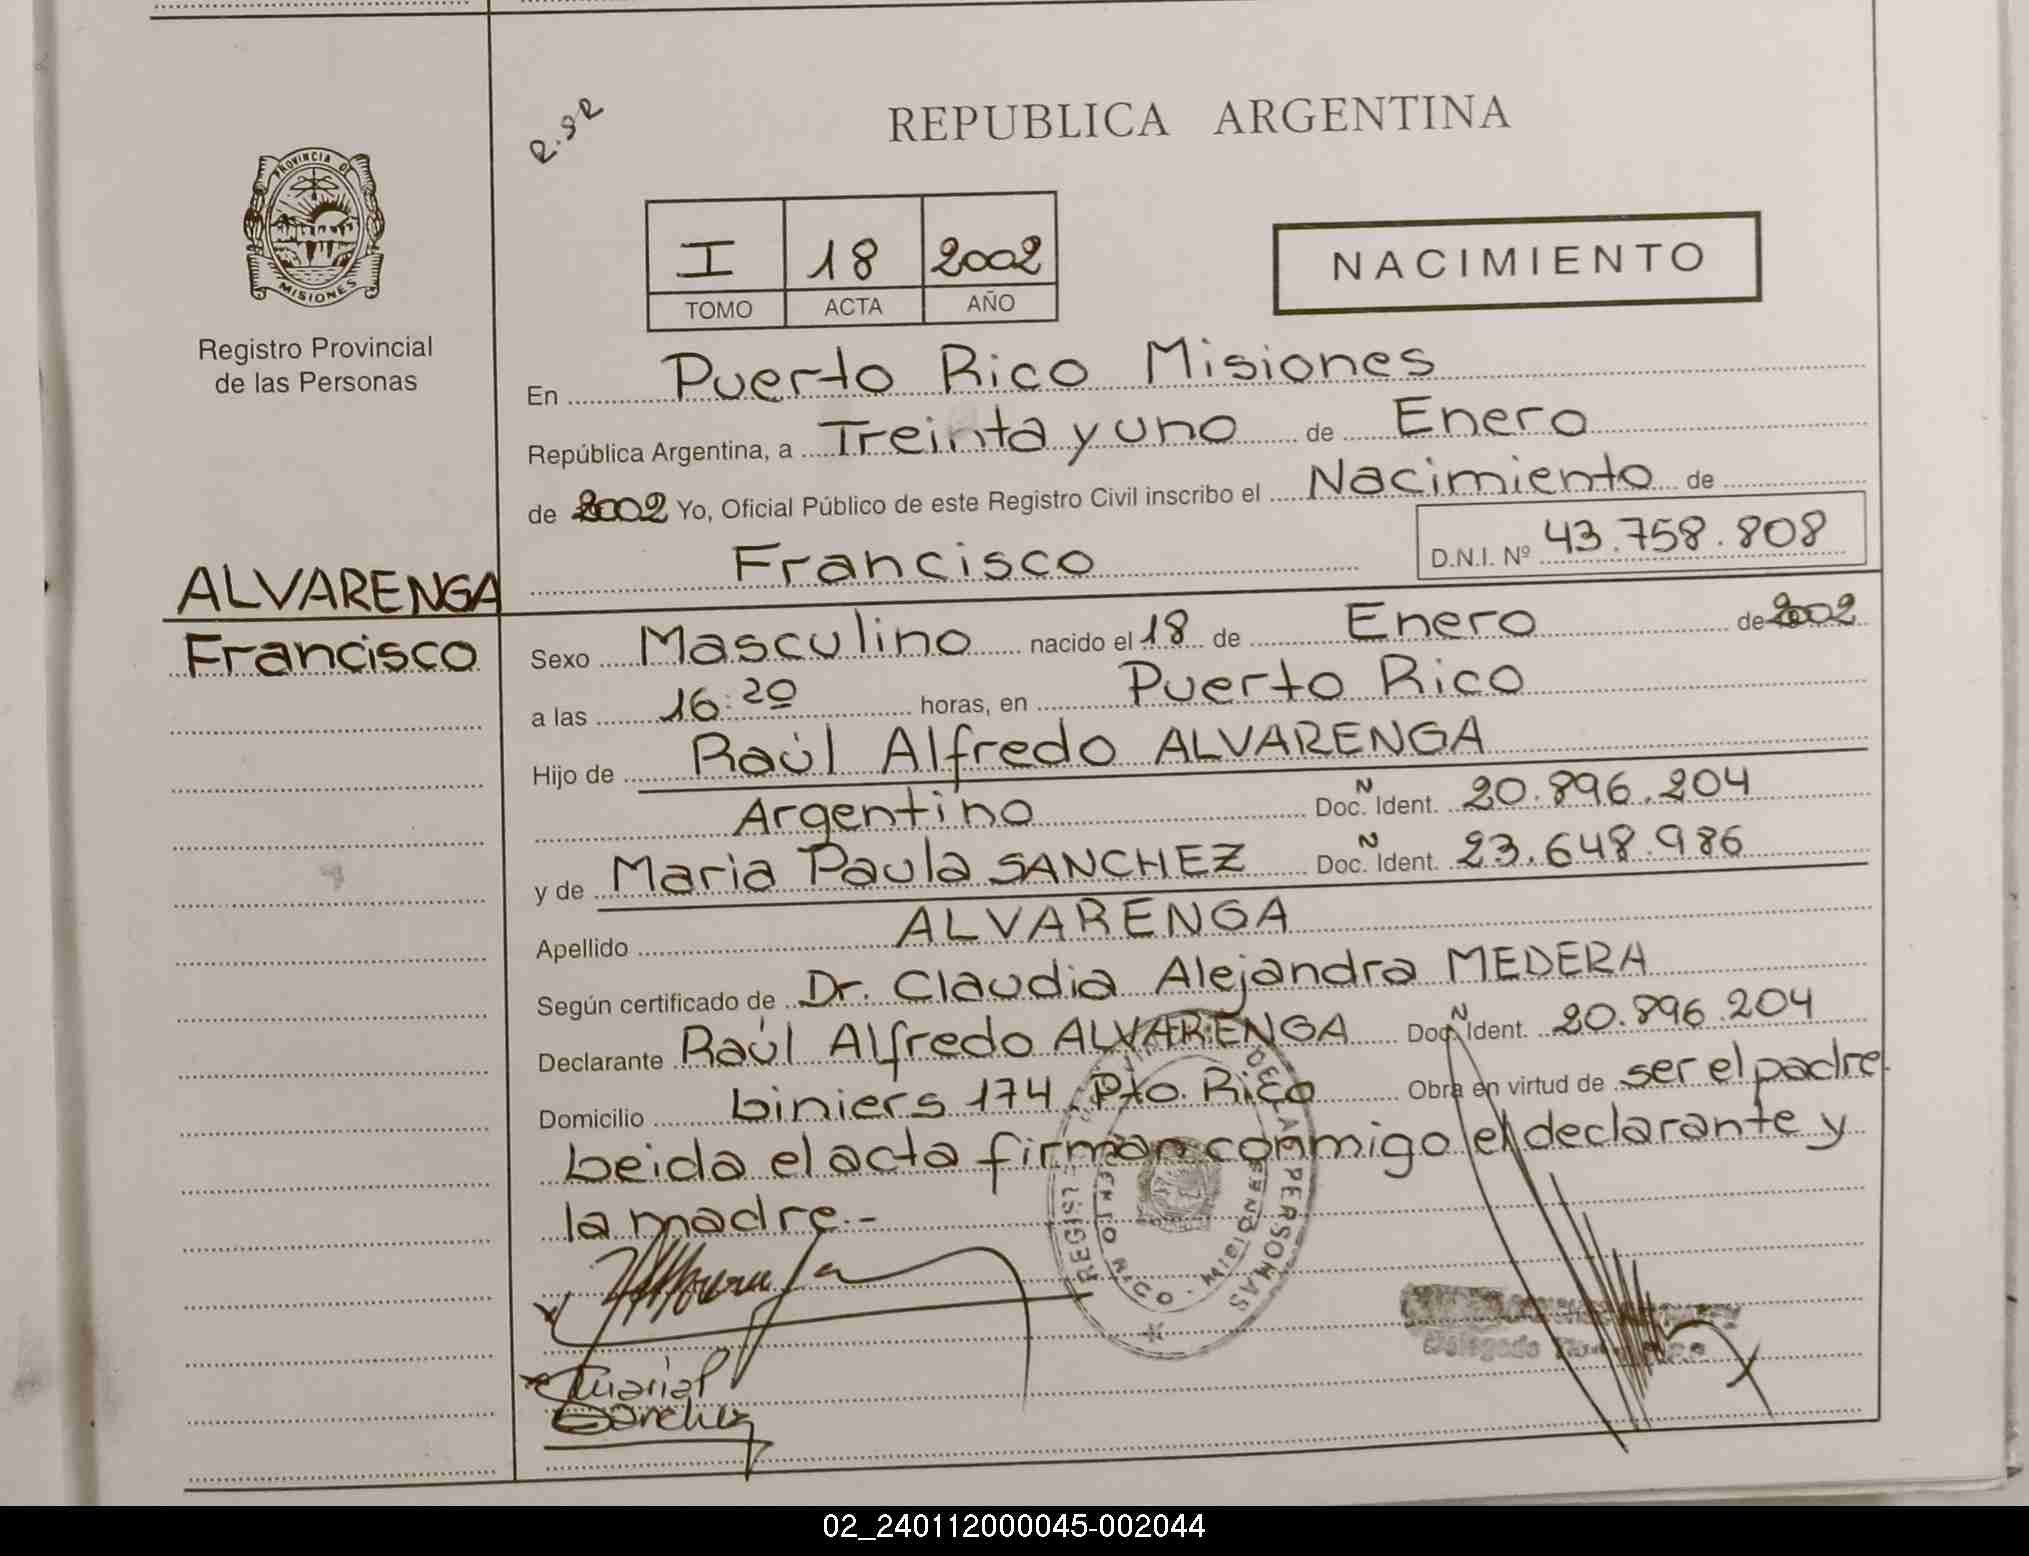 R.92
REPUBLICA ARGENTINA
PROVINCIA DE
MISIONES
Registro Provincial
de las Personas
I 18 2002
TOMO ACTA AÑO
NACIMIENTO
En Puerto Rico Misiones
República Argentina, a Treinta y uno de Enero
de 2002 Yo, Oficial Público de este Registro Civil inscribo el Nacimiento de
Francisco D.N.I. Nº 43.758.808
ALVARENGA
Francisco
Sexo Masculino nacido el 18 de Enero de 2002
a las 16:20 horas, en Puerto Rico
Hijo de Raúl Alfredo ALVARENGA
Argentino Doc. Ñ Ident. 20.896.204
y de Maria Paula SANCHEZ Doc. Ñ Ident. 23.648.986
Apellido ALVARENGA
Según certificado de Dr. Claudia Alejandra MEDERA
Declarante Raúl Alfredo ALVARENGA Doc. Ñ Ident. 20.896.204
Domicilio Liniers 174, Pto. Rico Obra en virtud de ser el padre.
Leida el acta firman conmigo el declarante y
la madre.-
Maria P
Sanchez
Delegado
02_240112000045-002044